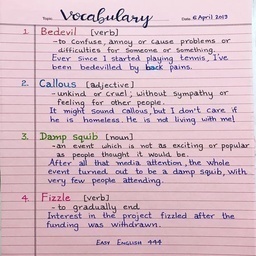 Topic: Vocabulary Date: 6 April 2019
1. Bedevil [verb]
-to confuse, annoy or cause problems or
difficulties for someone or something.
Ever since I started playing tennis, I've
been bedevilled by back pains.
2. Callous [adjective]
-unkind or cruel; without sympathy or
feeling for other people.
It might sound callous, but I don't care if
he is homeless. He is not living with me!
3. Damp Squib [noun]
-an event which is not as exciting or popular
as people thought it would be.
After all that media attention, the whole
event turned out to be a damp squib, with
very few people attending.
4. Fizzle [verb]
-to gradually end
Interest in the project fizzled after the
funding was withdrawn.
Easy English 444